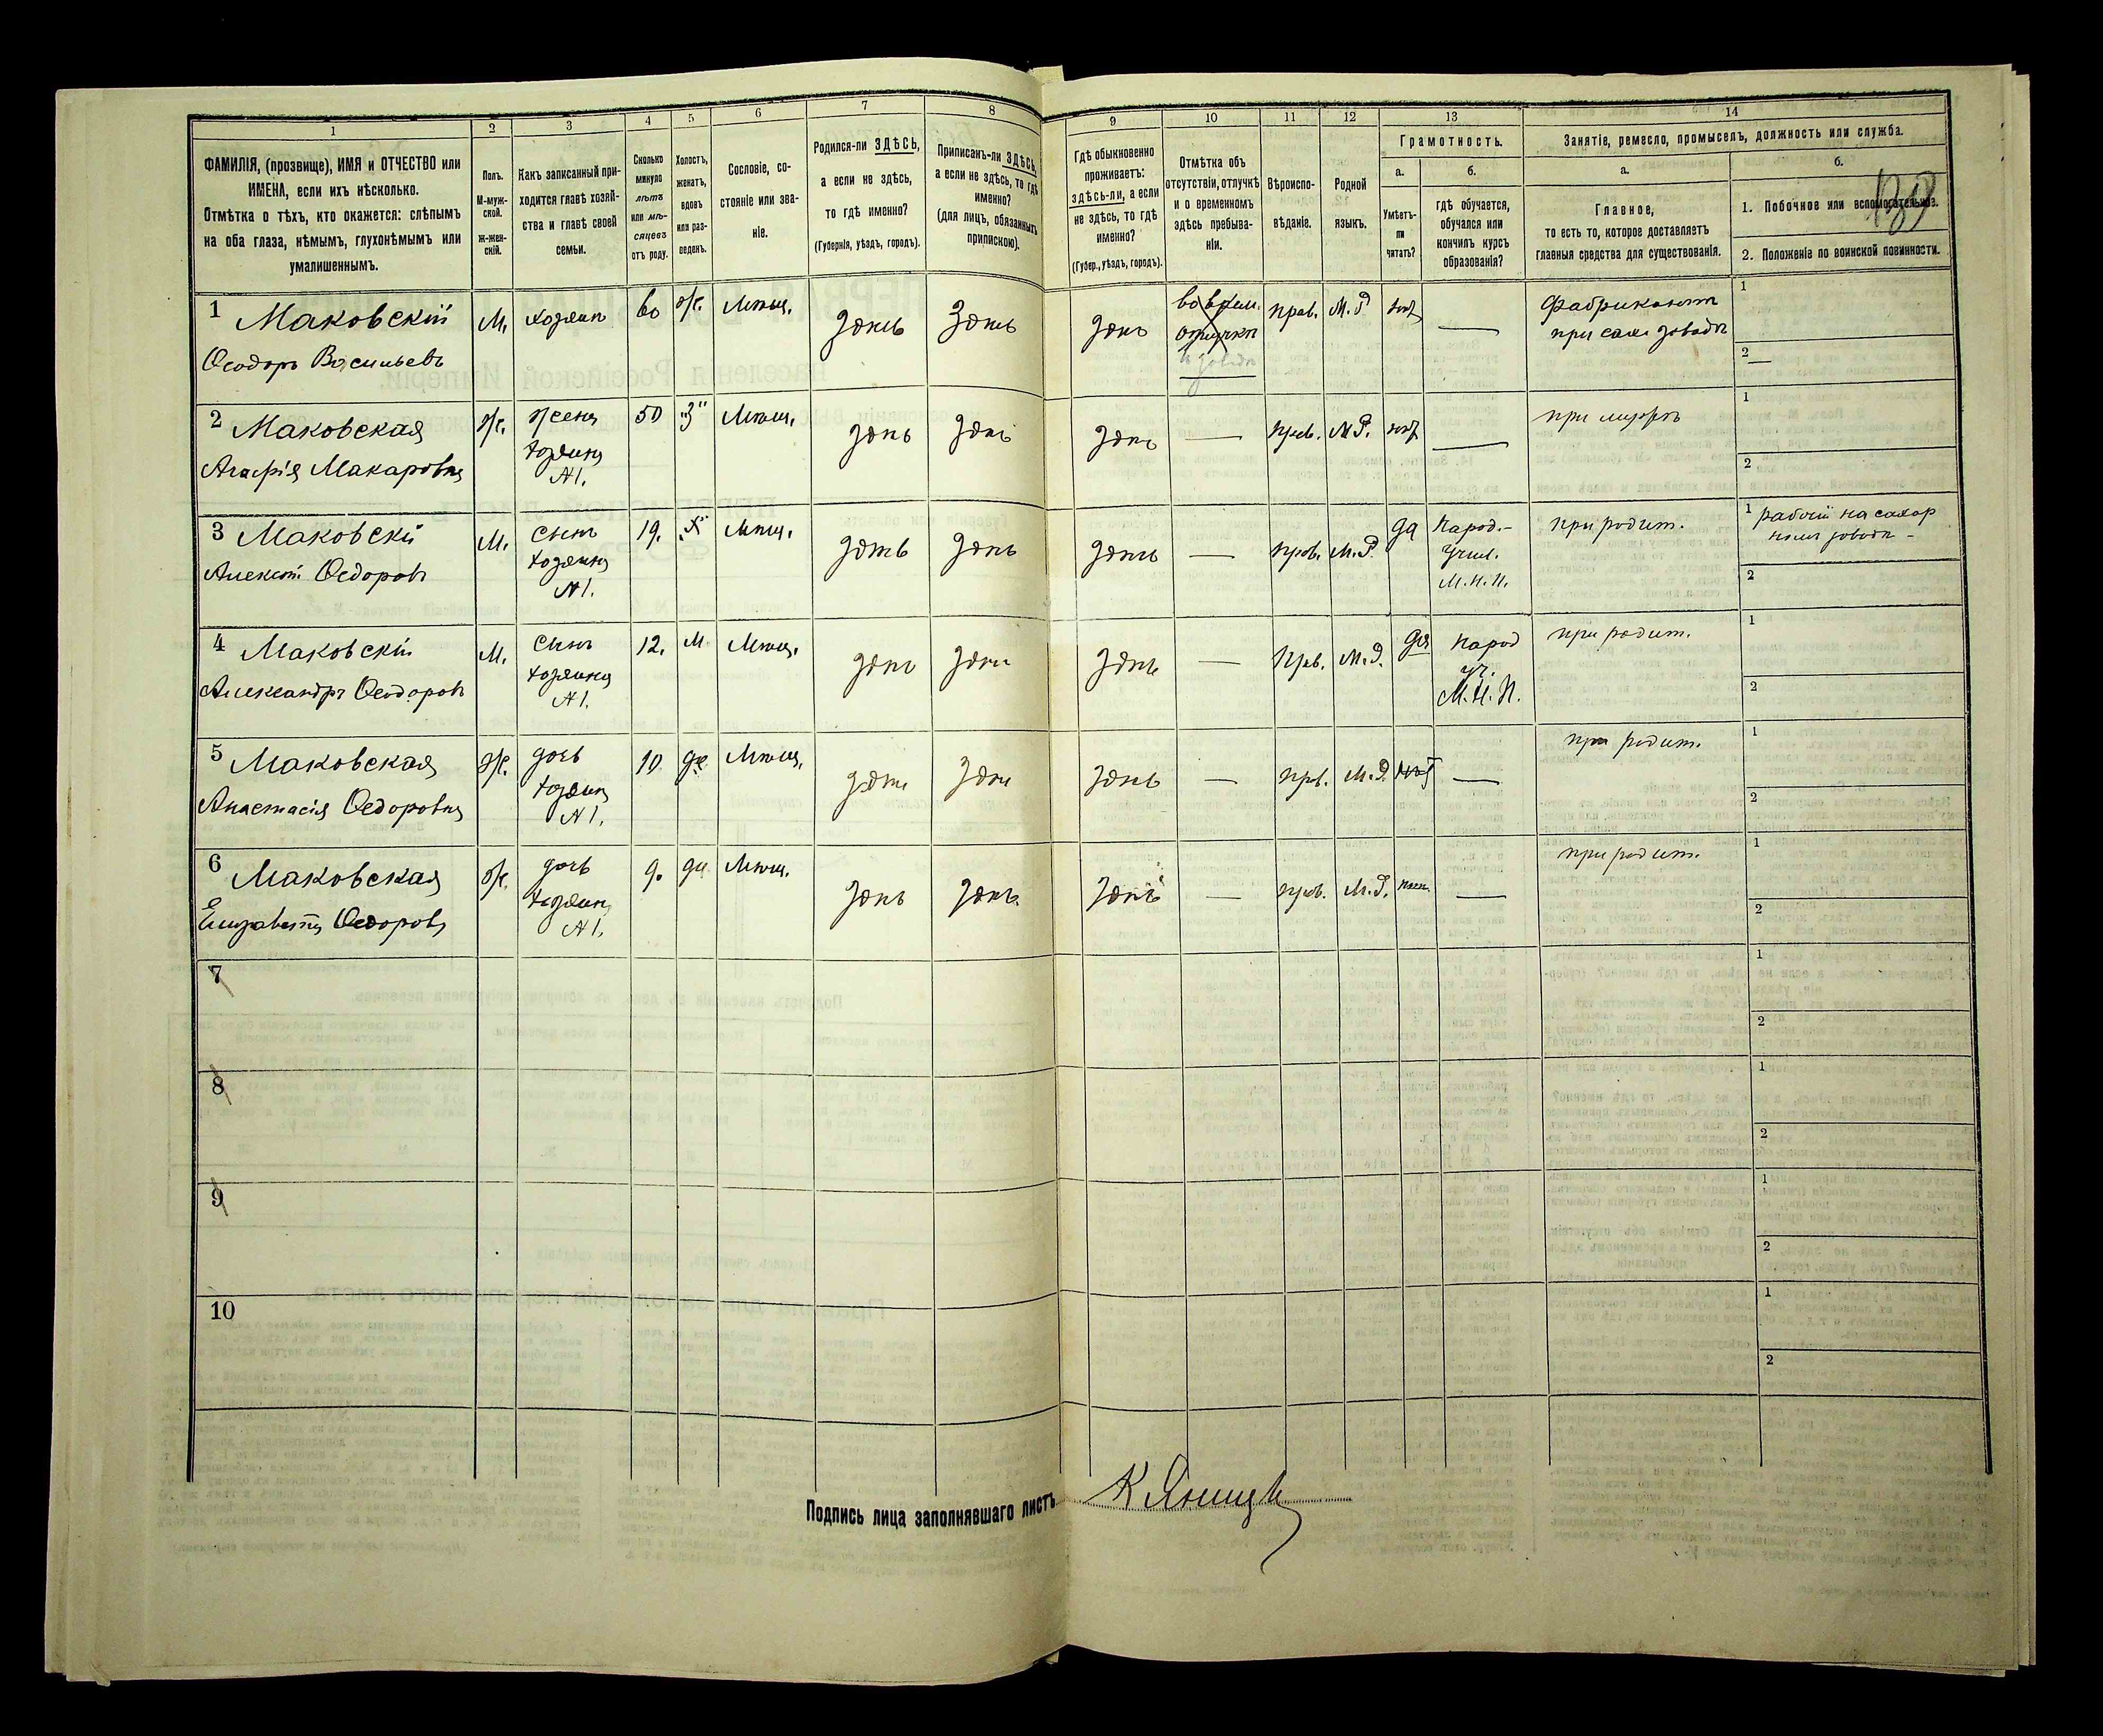 1 2 3 4 5 6 7 8 9 10 11 12 13 14
ФАМИЛІЯ, (прозвище), ИМЯ и ОТЧЕСТВО или
ИМЕНА, если ихъ нѣсколько.
Отмѣтка о тѣхъ, кто окажется: слѣпымъ
на оба глаза, нѣмымъ, глухонѣмымъ или
умалишеннымъ.
Полъ.
М-муж-
ской.
ж-жен-
скій.
Какъ записанный при-
ходится главѣ хозяй-
ства и главѣ своей
семьи.
Сколько
минуло
лѣтъ
или мѣ-
сяцевъ
отъ роду.
Холостъ,
женатъ,
вдовъ
или раз-
веденъ.
Сословіе, со-
стояніе или зва-
ніе.
Родился-ли ЗДѢСЬ,
а если не здѣсь,
то гдѣ именно?
(Губернія, уѣздъ, городъ).
Приписанъ-ли ЗДѢСЬ,
а если не здѣсь, то гдѣ
именно?
(для лицъ, обязанныхъ
припискою).
Гдѣ обыкновенно
проживаетъ:
здѣсь-ли, а если
не здѣсь, то гдѣ
именно?
(Губер., уѣздъ, городъ).
Отмѣтка объ
отсутствіи, отлучкѣ
и о временномъ
здѣсь пребыва-
ніи.
Вѣроиспо-
вѣданіе.
Родной
языкъ.
Грамотность.
а.
Умѣетъ-
ли
читать?
б.
гдѣ обучается,
обучался или
кончилъ курсъ
образованія?
Занятіе, ремесло, промыселъ, должность или служба.
а.
Главное,
то есть то, которое доставляетъ
главныя средства для существованія.
б.
1. Побочное или вспомогательное.
2. Положеніе по воинской повинности.
1 Маковскій М. хозяинъ 60 ж. Мѣщ. здѣсь здѣсь здѣсь прав. М.Р. нѣт — Фабрикант
Ѳеодоръ Васильевъ при сах. заводѣ
1
2 —
2 Маковская ж. жена 50 "З" Мѣщ. здѣсь здѣсь здѣсь — прав. М.Р. нѣт — при мужѣ
Агафія Макаровна хозяина
№1.
1
2
3 Маковскій М. сынъ 19. "Х" Мѣщ. здѣсь здѣсь здѣсь — прав. М.Р. да Народ.- при родит. 1 рабочій на сахар
Алексѣй Ѳедоровъ хозяина учил. ном заводѣ -
№1. М.Н.П.
2
4 Маковскій М. сынъ 12. М Мѣщ. здѣсь здѣсь здѣсь — Прв. М.Р. да Народ при родит.
Александръ Ѳеодоровъ хозяина уч.
№1. М.Н.П.
1
2
5 Маковская ж. дочь 10 дѣ Мѣщ. здѣсь здѣсь здѣсь — прв. М.Р. нѣт — при родит.
Анастасія Ѳедоровна хозяина
№1.
1
2
6 Маковская ж. дочь 9. Мѣщ. здѣсь здѣсь здѣсь — прв. М.Р. — при родит.
Елизавета Ѳедоров. хозяина
№1.
1
2
7
1
2
8
1
2
9
1
2
10
1
2
Подпись лица заполнявшаго листъ